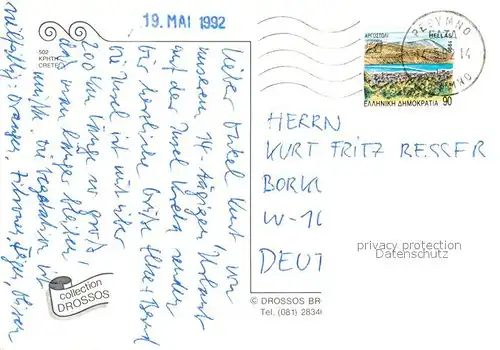 19. MAI 1992
502
ΚΡΗΤΗ
CRETE
Lieber Onkel Kurt, von
unserem 14-tägigen Urlaub
auf der Insel Kreta senden
wir herzliche Grüße
die Insel ist mit über
200 km Länge so groß,
daß man länger bleiben
müßte. Die Vegetation ist
vielfältig: Orangen, Zitronen, Feigen,
collection
DROSSOS
© DROSSOS BR
Tel. (081) 28346
ΑΡΓΟΣΤΟΛΙ
HELLAS
ΕΛΛΗΝΙΚΗ ΔΗΜΟΚΡΑΤΙΑ 90
ΡΕΘΥΜΝΟ
14
HERRN
KURT FRITZ RESSER
BORKU
W-10
DEUT
privacy protection
Datenschutz